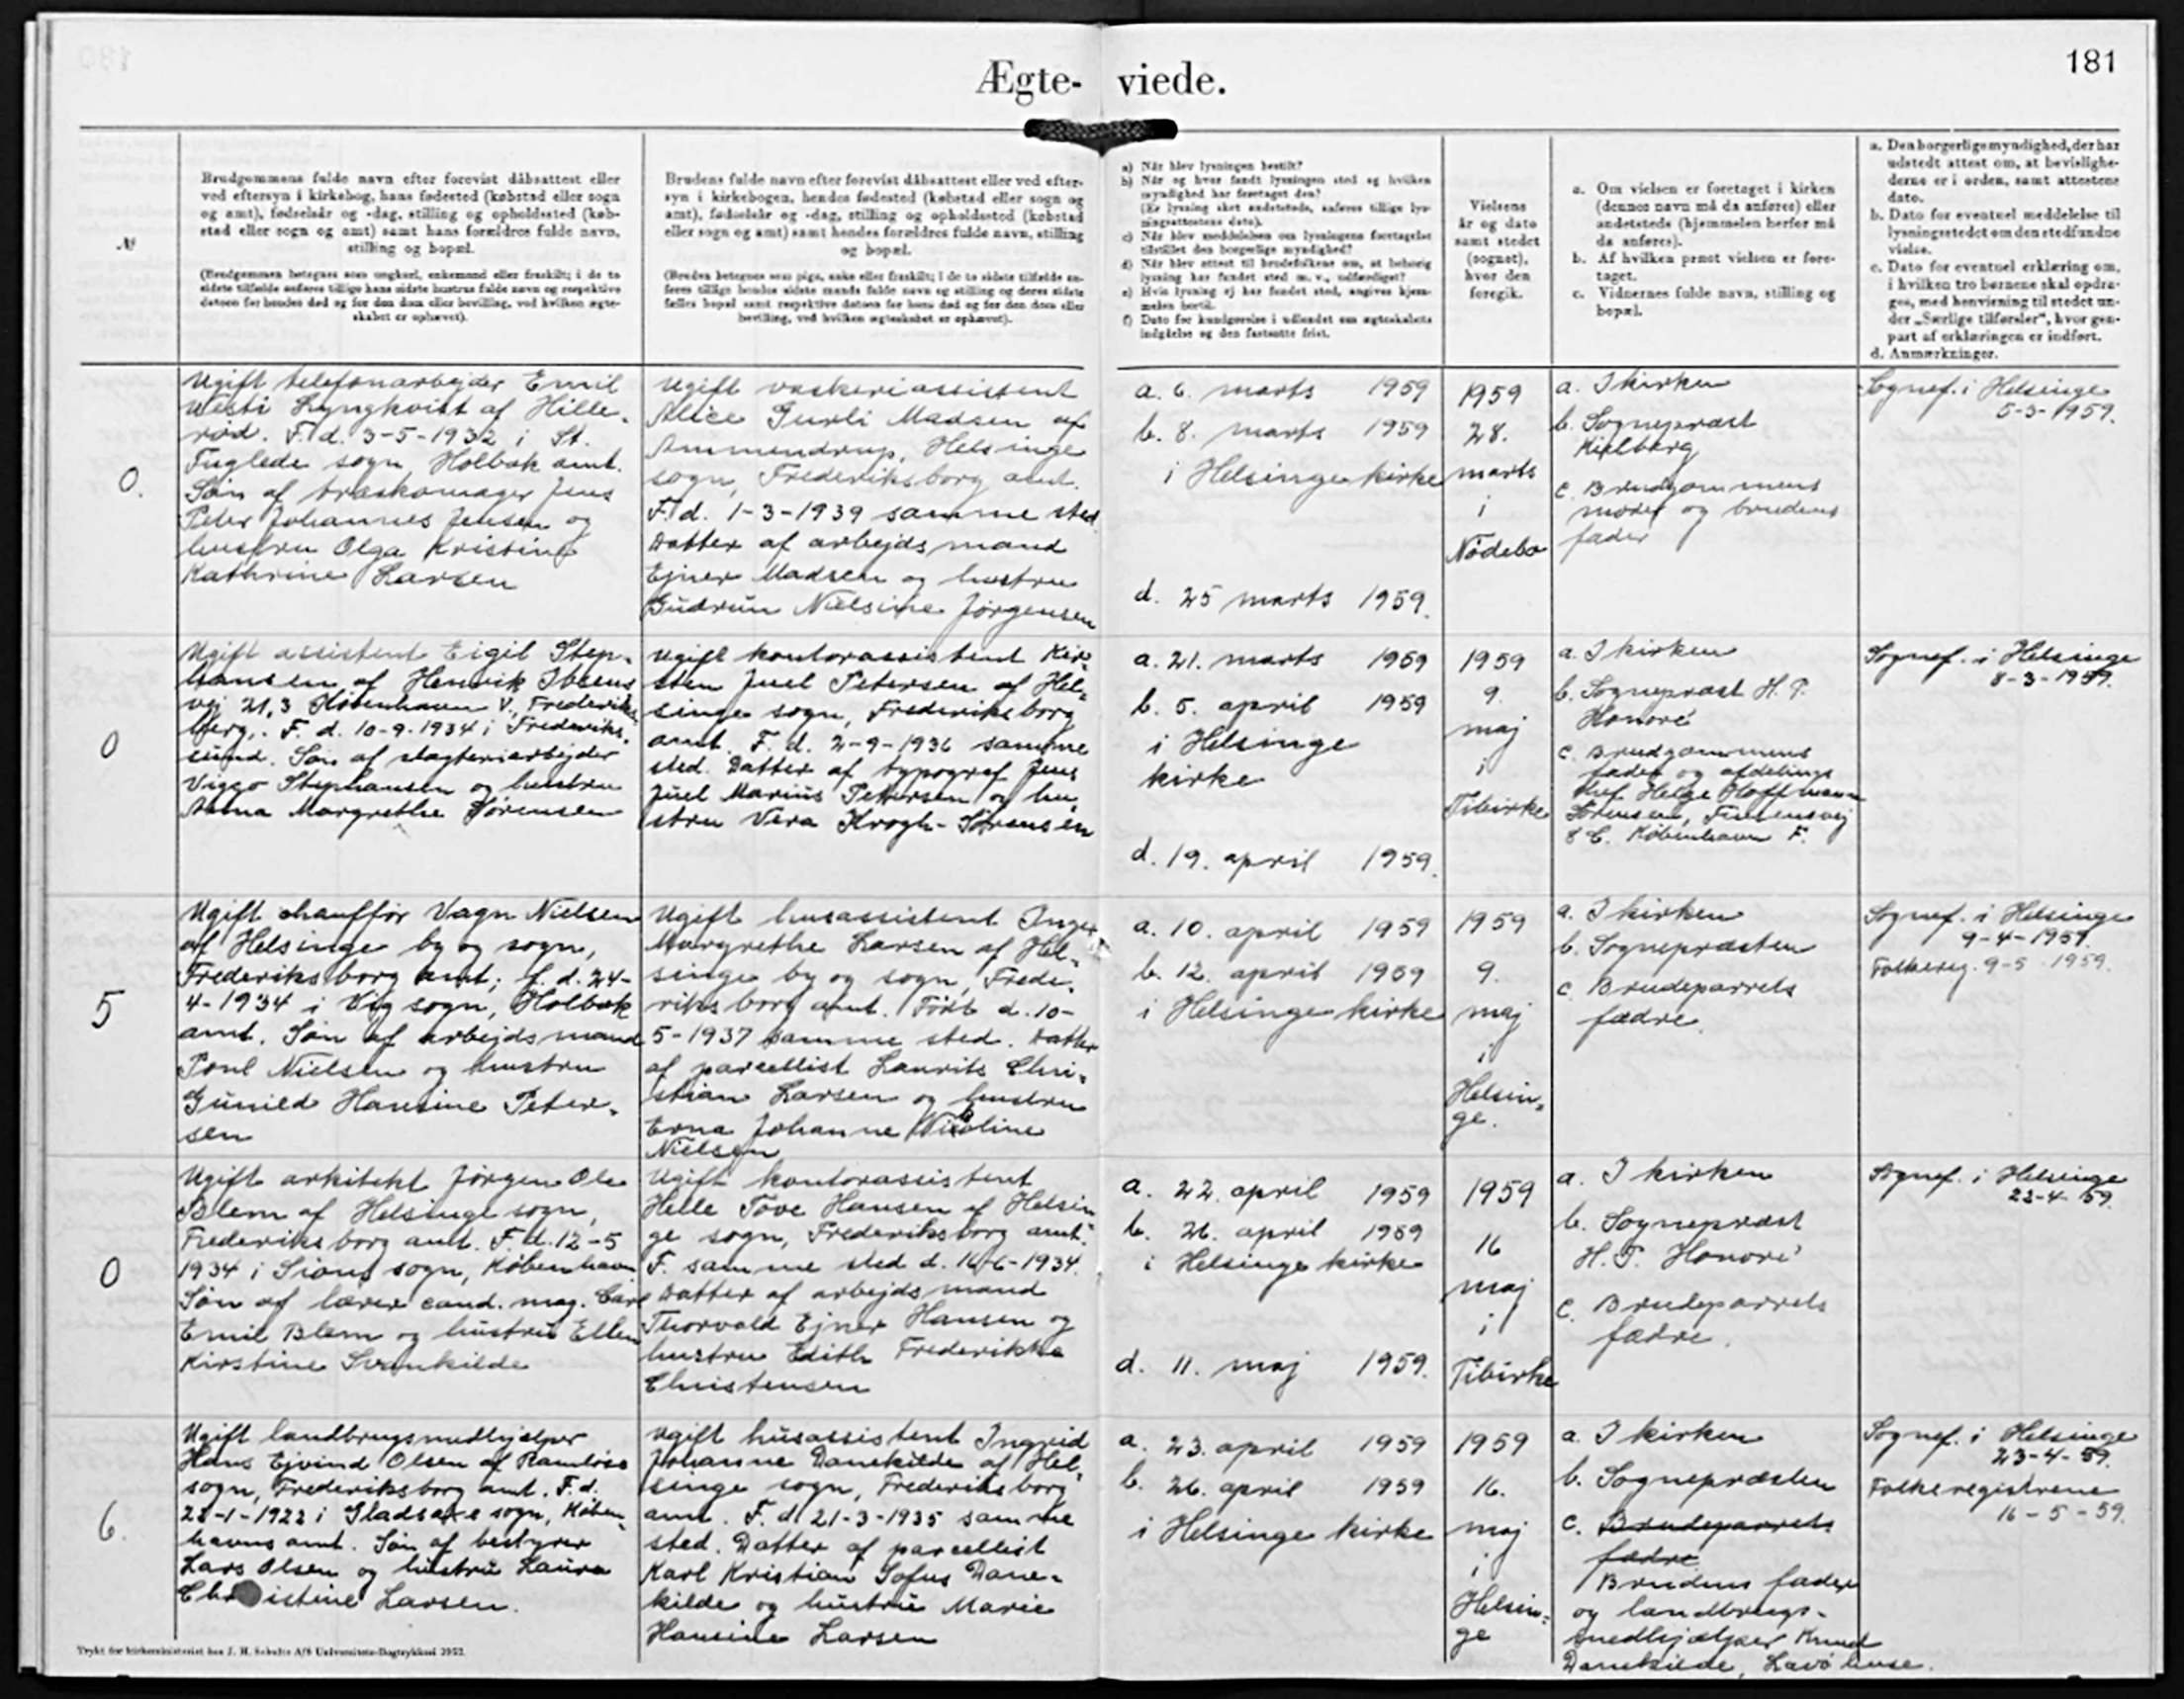 181
Ægte- viede.
№
Brudgommens fulde navn efter forevist dåbsattest eller
ved eftersyn i kirkebog, hans fødested (købstad eller sogn
og amt), fødselsår og -dag, stilling og opholdssted (køb-
stad eller sogn og amt) samt hans forældres fulde navn,
stilling og bopæl.
(Brudgommen betegnes som ungkarl, enkemand eller fraskilt; i de to
sidste tilfælde anføres tillige hans sidste hustrus fulde navn og respektive
datoen for hendes død og for den dom eller bevilling, ved hvilken ægte-
skabet er ophævet).
Brudens fulde navn efter forevist dåbsattest eller ved efter-
syn i kirkebogen, hendes fødested (købstad eller sogn og
amt), fødselsår og -dag, stilling og opholdssted (købstad
eller sogn og amt) samt hendes forældres fulde navn, stilling
og bopæl.
(Bruden betegnes som pige, enke eller fraskilt; i de to sidste tilfælde an-
føres tillige hendes sidste mands fulde navn og stilling og deres sidste
fælles bopæl samt respektive datoen for hans død og for den dom eller
bevilling, ved hvilken ægteskabet er ophævet).
a) Når blev lysningen bestilt?
b) Når og hvor fandt lysningen sted og hvilken
myndighed har foretaget den?
(Er lysning sket andetsteds, anføres tillige lys-
ningsattestens dato).
c) Når blev meddelelsen om lysningens foretagelse
tilstillet den borgerlige myndighed?
d) Når blev attest til brudefolkene om, at behørig
lysning har fundet sted m. v., udfærdiget?
e) Hvis lysning ej har fundet sted, angives hjem-
melen hertil.
f) Dato for kundgørelse i udlandet om ægteskabets
indgåelse og den fastsatte frist.
Vielsens
år og dato
samt stedet
(sognet),
hvor den
foregik.
a. Om vielsen er foretaget i kirken
(dennes navn må da anføres) eller
andetsteds (hjemmelen herfor må
da anføres).
b. Af hvilken præst vielsen er fore-
taget.
c. Vidnernes fulde navn, stilling og
bopæl.
a. Den borgerlige myndighed, der har
udstedt attest om, at bevislighe-
derne er i orden, samt attestens
dato.
b. Dato for eventuel meddelelse til
lysningsstedet om den stedfundne
vielse.
c. Dato for eventuel erklæring om,
i hvilken tro børnene skal opdra-
ges, med henvisning til stedet un-
der „Særlige tilførsler“, hvor gen-
part af erklæringen er indført.
d. Anmærkninger.
0.
Ugift telefonarbejder Emil
Vesti Lyngkvist af Hille-
rød. F. d. 3-5-1932 i St.
Fuglede sogn, Holbæk amt.
Søn af træskomager Jens
Peter Johannes Jensen og
hustru Olga Kristine
Kathrine Larsen
Ugift vaskeriassistent
Alice Gurli Madsen af
Ammendrup, Helsinge
sogn, Frederiksborg amt.
F. d. 1-3-1939 samme sted
Datter af arbejdsmand
Ejner Madsen og hustru
Gudrun Nielsine Jørgensen
a. 6. marts 1959
b. 8. marts 1959
i Helsinge kirke
d. 25 marts 1959.
1959
28.
marts
i
Nødebo
a. I kirken
b. Sognepræst
Kjølberg
c. Brudgommens
moder og brudens
fader
Sognef. i Helsinge
5-3-1959.
0
Ugift assistent Eigil Step-
hansen af Henrik Ibsens
vej 21,3 København V, Frederiks-
berg. F. d. 10-9-1934 i Frederiks-
sund. Søn af slagteriarbejder
Viggo Stephansen og hustru
Anna Margrethe Sørensen
Ugift kontorassistent Kir-
sten Juel Petersen af Hel-
singe sogn, Frederiksborg
amt. F. d. 2-9-1936 samme
sted. Datter af typograf Jens
Juel Marius Petersen og hu-
stru Vera Krogh-Sørensen
a. 21. marts 1959
b. 5. april 1959
i Helsinge
kirke
d. 19. april 1959.
1959
9.
maj
i
Tibirke
a. I kirken
b. Sognepræst H. P.
Honoré
c. Brudgommens
fader og afdelings
chef Helge Hoffmann
Sørensen, Finsensvej
8 C. København F.
Sognef. i Helsinge
8-3-1959.
5
Ugift chauffør Vagn Nielsen
af Helsinge by og sogn,
Frederiksborg amt; f. d. 24-
4-1934 i Vig sogn, Holbæk
amt. Søn af arbejdsmand
Poul Nielsen og hustru
Gunild Hansine Peter-
sen
Ugift husassistent Inger
Margrethe Larsen af Hel-
singe by og sogn, Frede-
riksborg amt. Født d. 10-
5-1937 samme sted. Datter
af parcellist Laurits Chri-
stian Larsen og hustru
Erna Johanne Nicoline
Nielsen
a. 10. april 1959
b. 12. april 1959
i Helsinge kirke
1959
9.
maj
i
Helsin-
ge.
a. I kirken
b. Sognepræsten
c. Brudeparrets
fædre.
Sognef. i Helsinge
9-4-1959.
Folkereg. 9-5 1959.
0
Ugift arkitekt Jørgen Ole
Blem af Helsinge sogn,
Frederiksborg amt. F. d. 12-5
1934 i Sions sogn, København
Søn af lærer cand. mag. Carl
Emil Blem og hustru Ellen
Kirstine Svenkilde
Ugift kontorassistent
Helle Tove Hansen af Helsin-
ge sogn, Frederiksborg amt.
F. samme sted d. 16-6-1934.
Datter af arbejdsmand
Thorvald Ejner Hansen og
hustru Edith Frederikke
Christensen
a. 22. april 1959
b. 26. april 1959
i Helsinge kirke
d. 11. maj 1959.
1959
16
maj
i
Tibirke
a. I kirken
b. Sognepræst
H. P. Honoré
c. Brudeparrets
fædre.
Sognef. i Helsinge
22-4-59.
6.
Ugift landbrugsmedhjælper
Hans Ejvind Olsen af Ramløse
sogn, Frederiksborg amt. F. d.
28-1-1922 i Gladsaxe sogn, Køben-
havns amt. Søn af bestyrer
Lars Olsen og hustru Laura
Christine Larsen.
Ugift husassistent Ingrid
Johanne Danekilde af Hel-
singe sogn, Frederiksborg
amt. F. d. 21-3-1935 samme
sted. Datter af parcellist
Karl Kristian Sofus Dane-
kilde og hustru Marie
Hansine Larsen
a. 23. april 1959
b. 26. april 1959
i Helsinge kirke
1959
16.
maj
i
Helsin-
ge
a. I kirken
b. Sognepræsten
c. Brudeparrets
fædre
Brudens fader
og landbrugs-
medhjælper Knud
Danekilde, Lavø huse.
Sognef. i Helsinge
23-4-59.
Folkeregistrene
16-5-59.
Trykt for kirkeministeriet hos J. H. Schultz A/S Universitets-Bogtrykkeri 1952